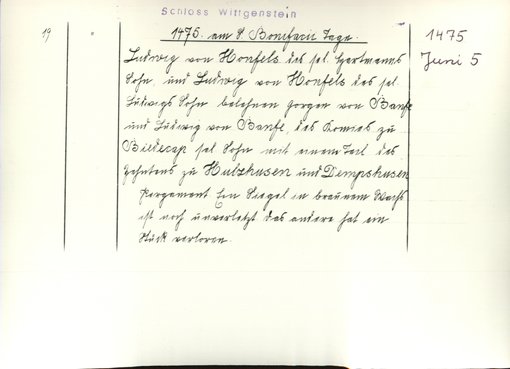 Schloss Wittgenstein
19
1475. am S. Bonifacii Tage.
1475
Juni 5
Ludwig von Honfels des sel. Hertmanns
Sohn, und Ludwig von Honfels des sel.
Ludwigs Sohn belehnen Gorgen von Banfe
und Ludwig von Banfe, des Komies zu
Biedecap sel Sohn mit einem Teil des
Zehntens zu Hulzhusen und Dempshusen
Pergament. Ein Siegel in braunem Wachs
ist noch unverletzt das andere hat ein
Stück verloren.